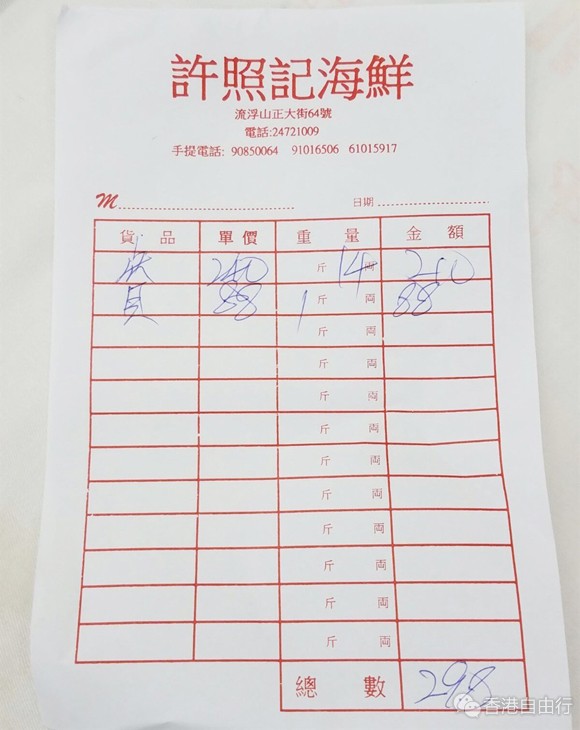 許照記海鮮
流浮山正大街64號
電話:24721009
手提電話: 90850064 91016506 61015917
M 日期
貨品 單價 重量 金額
240 斤 14 両 210
貝 88 1 斤 両 88
斤 両
斤 両
斤 両
斤 両
斤 両
斤 両
斤 両
斤 両
斤 両
斤 両
總數 298
香港自由行